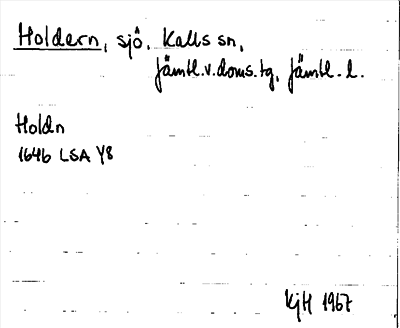 Holdern, sjö. Kalls sn,
Jämtl.v.doms.tg, Jämtl. l.
Holdn
1646 LSA Y8
KjH 1967